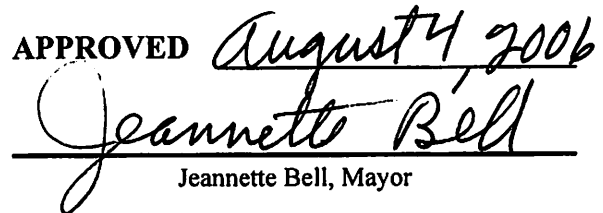 APPROVED August 4, 2006
Jeannette Bell
Jeannette Bell, Mayor